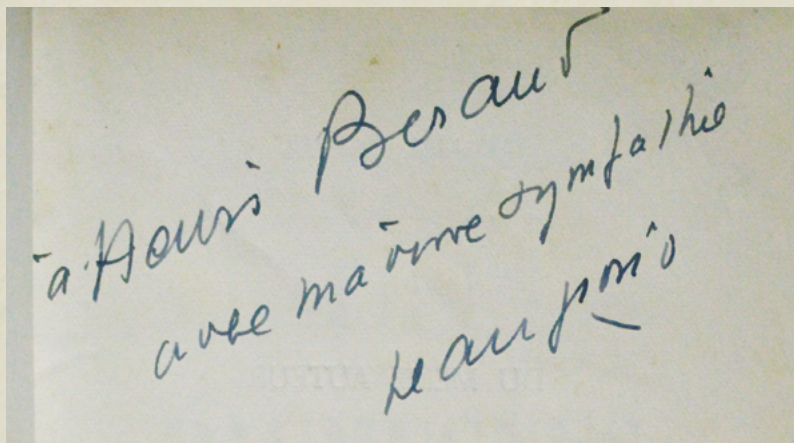 à Henri Beraud
avec ma vive sympathie
Jean Giono